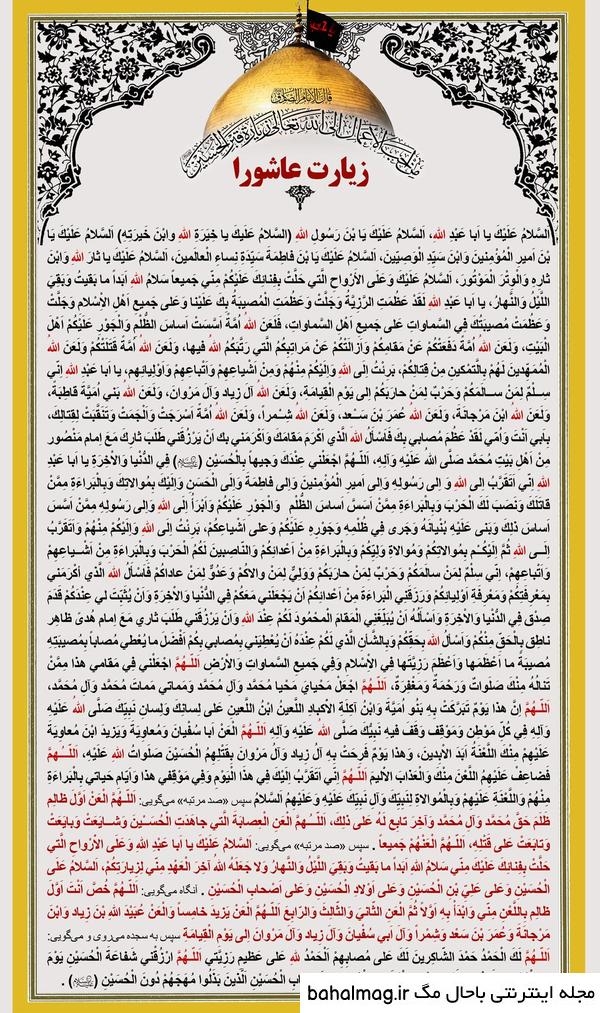 قال الامام الصادق
من احب الاعمال الی الله تعالی زیارة قبر الحسین
زیارت عاشورا
اَلسَّلامُ عَلَيْكَ يا اَبا عَبْدِ اللهِ، اَلسَّلامُ عَلَيْكَ يَا بْنَ رَسُولِ اللهِ (السَّلامُ عَلَيكَ يا خِيَرَةِ اللهِ وابْنَ خَيرَتِهِ) اَلسَّلامُ عَلَيْكَ يَا
بْنَ اَميرِ الْمُؤْمِنينَ وَابْنَ سَيِّدِ الْوَصِيّينَ، اَلسَّلامُ عَلَيْكَ يَا بْنَ فاطِمَةَ سَيِّدَةِ نِساءِ الْعالَمينَ، اَلسَّلامُ عَلَيْكَ يا ثارَ اللهِ وَابْنَ
ثارِهِ وَالْوِتْرَ الْمَوْتُورَ، اَلسَّلامُ عَلَيْكَ وَعَلَى الْأَرْواحِ الَّتي حَلَّتْ بِفِنائِكَ عَلَيْكُمْ مِنّي جَميعاً سَلامُ اللهِ اَبَداً ما بَقيتُ وَبَقِيَ
اللَّيْلُ وَالنَّهارُ، يا اَبا عَبْدِ اللهِ لَقَدْ عَظُمَتِ الرَّزِيَّةُ وَجَلَّتْ وَعَظُمَتِ الْمُصيبَةُ بِكَ عَلَيْنا وَعَلى جَميعِ اَهْلِ الْاِسْلامِ وَجَلَّتْ
وَعَظُمَتْ مُصيبَتُكَ فِي السَّماواتِ عَلى جَميعِ اَهْلِ السَّماواتِ، فَلَعَنَ اللهُ اُمَّةً اَسَّسَتْ اَساسَ الظُّلْمِ وَالْجَوْرِ عَلَيْكُمْ اَهْلَ
الْبَيْتِ، وَلَعَنَ اللهُ اُمَّةً دَفَعَتْكُمْ عَنْ مَقامِكُمْ وَاَزالَتْكُمْ عَنْ مَراتِبِكُمُ الَّتي رَتَّبَكُمُ اللهُ فيها، وَلَعَنَ اللهُ اُمَّةً قَتَلَتْكُمْ وَلَعَنَ اللهُ
الْمُمَهِّدينَ لَهُمْ بِالتَّمْكينِ مِنْ قِتالِكُمْ، بَرِئْتُ اِلَى اللهِ وَاِلَيْكُمْ مِنْهُمْ وَمِنْ اَشْياعِهِمْ وَاَتْباعِهِمْ وَاَوْلِيائِهِم، يا اَبا عَبْدِ اللهِ اِنّي
سِلْمٌ لِمَنْ سالَمَكُمْ وَحَرْبٌ لِمَنْ حارَبَكُمْ اِلى يَوْمِ الْقِيامَةِ، وَلَعَنَ اللهُ آلَ زِياد وَآلَ مَرْوانَ، وَلَعَنَ اللهُ بَني اُمَيَّةَ قاطِبَةً،
وَلَعَنَ اللهُ ابْنَ مَرْجانَةَ، وَلَعَنَ اللهُ عُمَرَ بْنَ سَعْد، وَلَعَنَ اللهُ شِمْراً، وَلَعَنَ اللهُ اُمَّةً اَسْرَجَتْ وَاَلْجَمَتْ وَتَنَقَّبَتْ لِقِتالِكَ،
بِاَبي اَنْتَ وَاُمّي لَقَدْ عَظُمَ مُصابي بِكَ فَاَسْأَلُ اللهَ الَّذي اَكْرَمَ مَقامَكَ وَاَكْرَمَني بِكَ اَنْ يَرْزُقَني طَلَبَ ثارِكَ مَعَ اِمام مَنْصُور
مِنْ اَهْلِ بَيْتِ مُحَمَّد صَلَّى اللهُ عَلَيْهِ وَآلِهِ، اَللّهُمَّ اجْعَلْني عِنْدَكَ وَجيهاً بِالْحُسَيْنِ (ﷺ) فِي الدُّنْيا وَالآخِرَةِ يا اَبا عَبْدِ
اللهِ اِنّي اَتَقَرَّبُ اِلى اللهِ وَ اِلى رَسُولِهِ وَاِلى اَميرِ الْمُؤْمِنينَ وَاِلى فاطِمَةَ وَاِلَى الْحَسَنِ وَاِلَيْكَ بِمُوالاتِكَ وَبِالْبَراءَةِ مِمَّنْ
قاتَلَكَ وَنَصَبَ لَكَ الْحَرْبَ وَبِالْبَراءَةِ مِمَّنْ اَسَّسَ اَساسَ الظُّلْمِ وَالْجَوْرِ عَلَيْكُمْ وَاَبْرَأُ اِلَى اللهِ وَاِلى رَسُولِهِ مِمَّنْ اَسَّسَ
اَساسَ ذلِكَ وَبَنى عَلَيْهِ بُنْيانَهُ وَجَرى فِي ظُلْمِهِ وَجَوْرِهِ عَلَيْكُمْ وَعَلى اَشْياعِكُمْ، بَرِئْتُ اِلَى اللهِ وَاِلَيْكُمْ مِنْهُمْ وَاَتَقَرَّبُ
اِلَى اللهِ ثُمَّ اِلَيْكُمْ بِمُوالاتِكُمْ وَمُوالاةِ وَلِيِّكُمْ وَبِالْبَراءَةِ مِنْ اَعْدائِكُمْ وَالنّاصِبينَ لَكُمُ الْحَرْبَ وَبِالْبَراءَةِ مِنْ اَشْياعِهِمْ
وَاَتْباعِهِمْ، اِنّي سِلْمٌ لِمَنْ سالَمَكُمْ وَحَرْبٌ لِمَنْ حارَبَكُمْ وَوَلِيٌّ لِمَنْ والاكُمْ وَعَدُوٌّ لِمَنْ عاداكُمْ فَاَسْأَلُ اللهَ الَّذي اَكْرَمَني
بِمَعْرِفَتِكُمْ وَمَعْرِفَةِ اَوْلِيائِكُمْ وَرَزَقَنِي الْبَراءَةَ مِنْ اَعْدائِكُمْ اَنْ يَجْعَلَني مَعَكُمْ فِي الدُّنْيا وَالآخِرَةِ وَاَنْ يُثَبِّتَ لي عِنْدَكُمْ قَدَمَ
صِدْق فِي الدُّنْيا وَالآخِرَةِ وَاَسْأَلُهُ اَنْ يُبَلِّغَنِي الْمَقامَ الَْمحْمُودَ لَكُمْ عِنْدَ اللهِ وَاَنْ يَرْزُقَني طَلَبَ ثاري مَعَ اِمام هُدىً ظاهِر
ناطِق بِالْحَقِّ مِنْكُمْ وَاَسْأَلُ اللهَ بِحَقِّكُمْ وَبِالشَّأنِ الَّذي لَكُمْ عِنْدَهُ اَنْ يُعْطِيَني بِمُصابي بِكُمْ اَفْضَلَ ما يُعْطي مُصاباً بِمُصيبَتِهِ
مُصيبَةً ما اَعْظَمَها وَاَعْظَمَ رَزِيَّتَها فِي الْاِسْلامِ وَفِي جَميعِ السَّماواتِ وَالْاَرْضِ اَللّهُمَّ اجْعَلْني فِي مَقامي هذا مِمَّنْ
تَنالُهُ مِنْكَ صَلَواتٌ وَرَحْمَةٌ وَمَغْفِرَةٌ، اَللّهُمَّ اجْعَلْ مَحْيايَ مَحْيا مُحَمَّد وَآلِ مُحَمَّد وَمَماتي مَماتَ مُحَمَّد وَآلِ مُحَمَّد،
اَللّهُمَّ اِنَّ هذا يَوْمٌ تَبَرَّكَتْ بِهِ بَنُو اُمَيَّةَ وَابْنُ آكِلَةِ الْاَكبادِ اللَّعينُ ابْنُ اللَّعينِ عَلى لِسانِكَ وَلِسانِ نَبِيِّكَ صَلَّى اللهُ عَلَيْهِ
وَآلِهِ فِي كُلِّ مَوْطِن وَمَوْقِف وَقَفَ فيهِ نَبِيُّكَ صَلَّى اللهُ عَلَيْهِ وَآلِهِ اَللّهُمَّ الْعَنْ اَبا سُفْيانَ وَمُعاوِيَةَ وَيَزيدَ ابْنَ مُعاوِيَةَ
عَلَيْهِمْ مِنْكَ اللَّعْنَةُ اَبَدَ الآبِدينَ، وَهذا يَوْمٌ فَرِحَتْ بِهِ آلُ زِياد وَآلُ مَرْوانَ بِقَتْلِهِمُ الْحُسَيْنَ صَلَواتُ اللهِ عَلَيْهِ، اَللّهُمَّ
فَضاعِفْ عَلَيْهِمُ اللَّعْنَ مِنْكَ وَالْعَذابَ الْاَليمَ اَللّهُمَّ اِنّي اَتَقَرَّبُ اِلَيْكَ فِي هذَا الْيَوْمِ وَفِي مَوْقِفي هذا وَاَيّامِ حَياتي بِالْبَراءَةِ
مِنْهُمْ وَاللَّعْنَةِ عَلَيْهِمْ وَبِالْمُوالاةِ لِنَبِيِّكَ وَآلِ نَبِيِّكَ عَلَيْهِ وَعَلَيْهِمُ السَّلامُ سپس «صد مرتبه» می‌گویی: اَللّهُمَّ الْعَنْ اَوَّلَ ظالِم
ظَلَمَ حَقَّ مُحَمَّد وَآلِ مُحَمَّد وَآخِرَ تابِع لَهُ عَلى ذلِكَ، اَللّهُمَّ الْعَنِ الْعِصابَةَ الَّتي جاهَدَتِ الْحُسَيْنَ وَشايَعَتْ وَبايَعَتْ
وَتابَعَتْ عَلى قَتْلِهِ، اَللّهُمَّ الْعَنْهُمْ جَميعاً . سپس «صد مرتبه» می‌گویی: اَلسَّلامُ عَلَيْكَ يا اَبا عَبْدِ اللهِ وَعَلَى الْاَرْواحِ الَّتي
حَلَّتْ بِفِنائِكَ عَلَيْكَ مِنّي سَلامُ اللهِ اَبَداً ما بَقيتُ وَبَقِيَ اللَّيْلُ وَالنَّهارُ وَلا جَعَلَهُ اللهُ آخِرَ الْعَهْدِ مِنّي لِزِيارَتِكُمْ، اَلسَّلامُ عَلَى
الْحُسَيْنِ وَعَلى عَلِيِّ بْنِ الْحُسَيْنِ وَعَلى اَوْلادِ الْحُسَيْنِ وَعَلى اَصْحابِ الْحُسَيْنِ . آنگاه می‌گویی: اَللّهُمَّ خُصَّ اَنْتَ اَوَّلَ
ظالِم بِاللَّعْنِ مِنّي وَابْدَأْ بِهِ اَوَّلاً ثُمَّ الْعَنِ الثّانيَ وَالثّالِثَ وَالرّابِعَ اَللّهُمَّ الْعَنْ يَزيدَ خامِساً وَالْعَنْ عُبَيْدَ اللهِ بْنَ زِياد وَابْنَ
مَرْجانَةَ وَعُمَرَ بْنَ سَعْد وَشِمْراً وَآلَ اَبي سُفْيانَ وَآلَ زِياد وَآلَ مَرْوانَ اِلى يَوْمِ الْقِيامَةِ سپس به سجده می‌روی و می‌گویی:
اَللّهُمَّ لَكَ الْحَمْدُ حَمْدَ الشّاكِرينَ لَكَ عَلى مُصابِهِمْ اَلْحَمْدُ للهِ عَلى عَظيمِ رَزِيَّتي اَللّهُمَّ ارْزُقْني شَفاعَةَ الْحُسَيْنِ يَوْمَ
بِ الْحُسَيْنِ الَّذينَ بَذَلُوا مُهَجَهُمْ دُونَ الْحُسَيْنِ (ﷺ) .
مجله اینترنتی باحال مگ bahalmag.ir